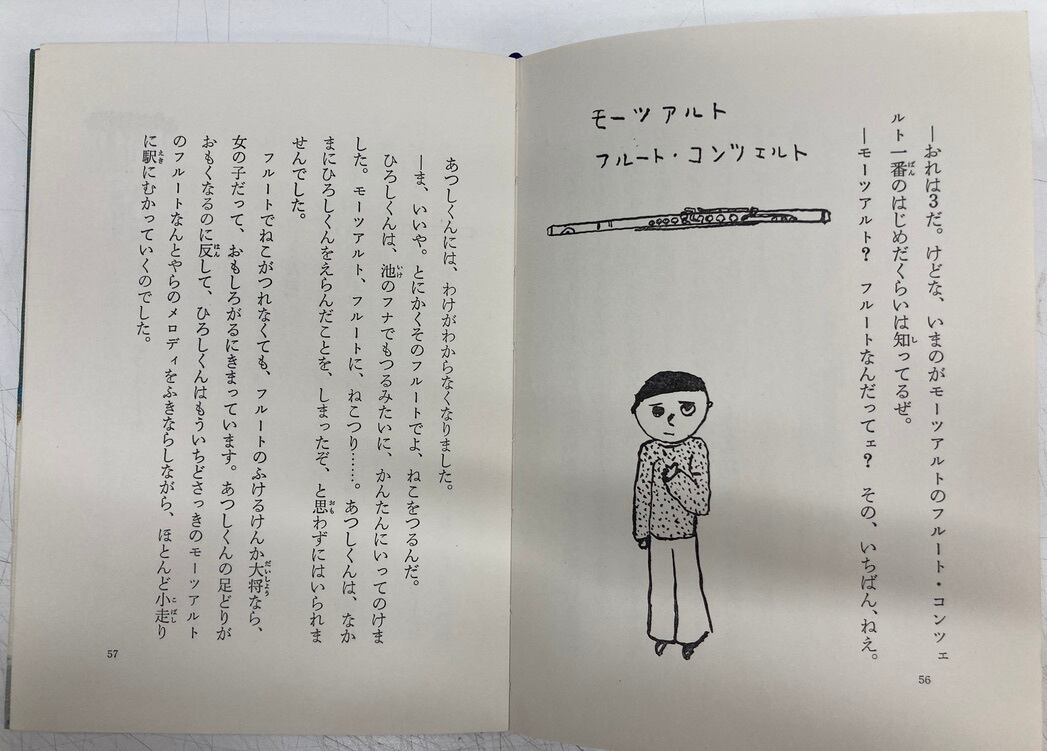 ―おれは3だ。けどな、いまのがモーツアルトのフルート・コンツェ
ルト一番のはじめだくらいは知ってるぜ。
―モーツアルト？　フルートなんだってェ？　その、いちばん、ねえ。
モーツアルト
フルート・コンツェルト
56
あつしくんには、わけがわからなくなりました。
―ま、いいや。とにかくそのフルートでよ、ねこをつるんだ。
ひろしくんは、池のフナでもつるみたいに、かんたんにいってのけま
した。モーツアルト、フルートに、ねこつり……。あつしくんは、なか
まにひろしくんをえらんだことを、しまったぞ、と思わずにはいられま
せんでした。
フルートでねこがつれなくても、フルートのふけるけんか大将なら、
女の子だって、おもしろがるにきまっています。あつしくんの足どりが
おもくなるのに反して、ひろしくんはもういちどさっきのモーツアルト
のフルートなんとやらのメロディをふきならしながら、ほとんど小走り
に駅にむかっていくのでした。
57